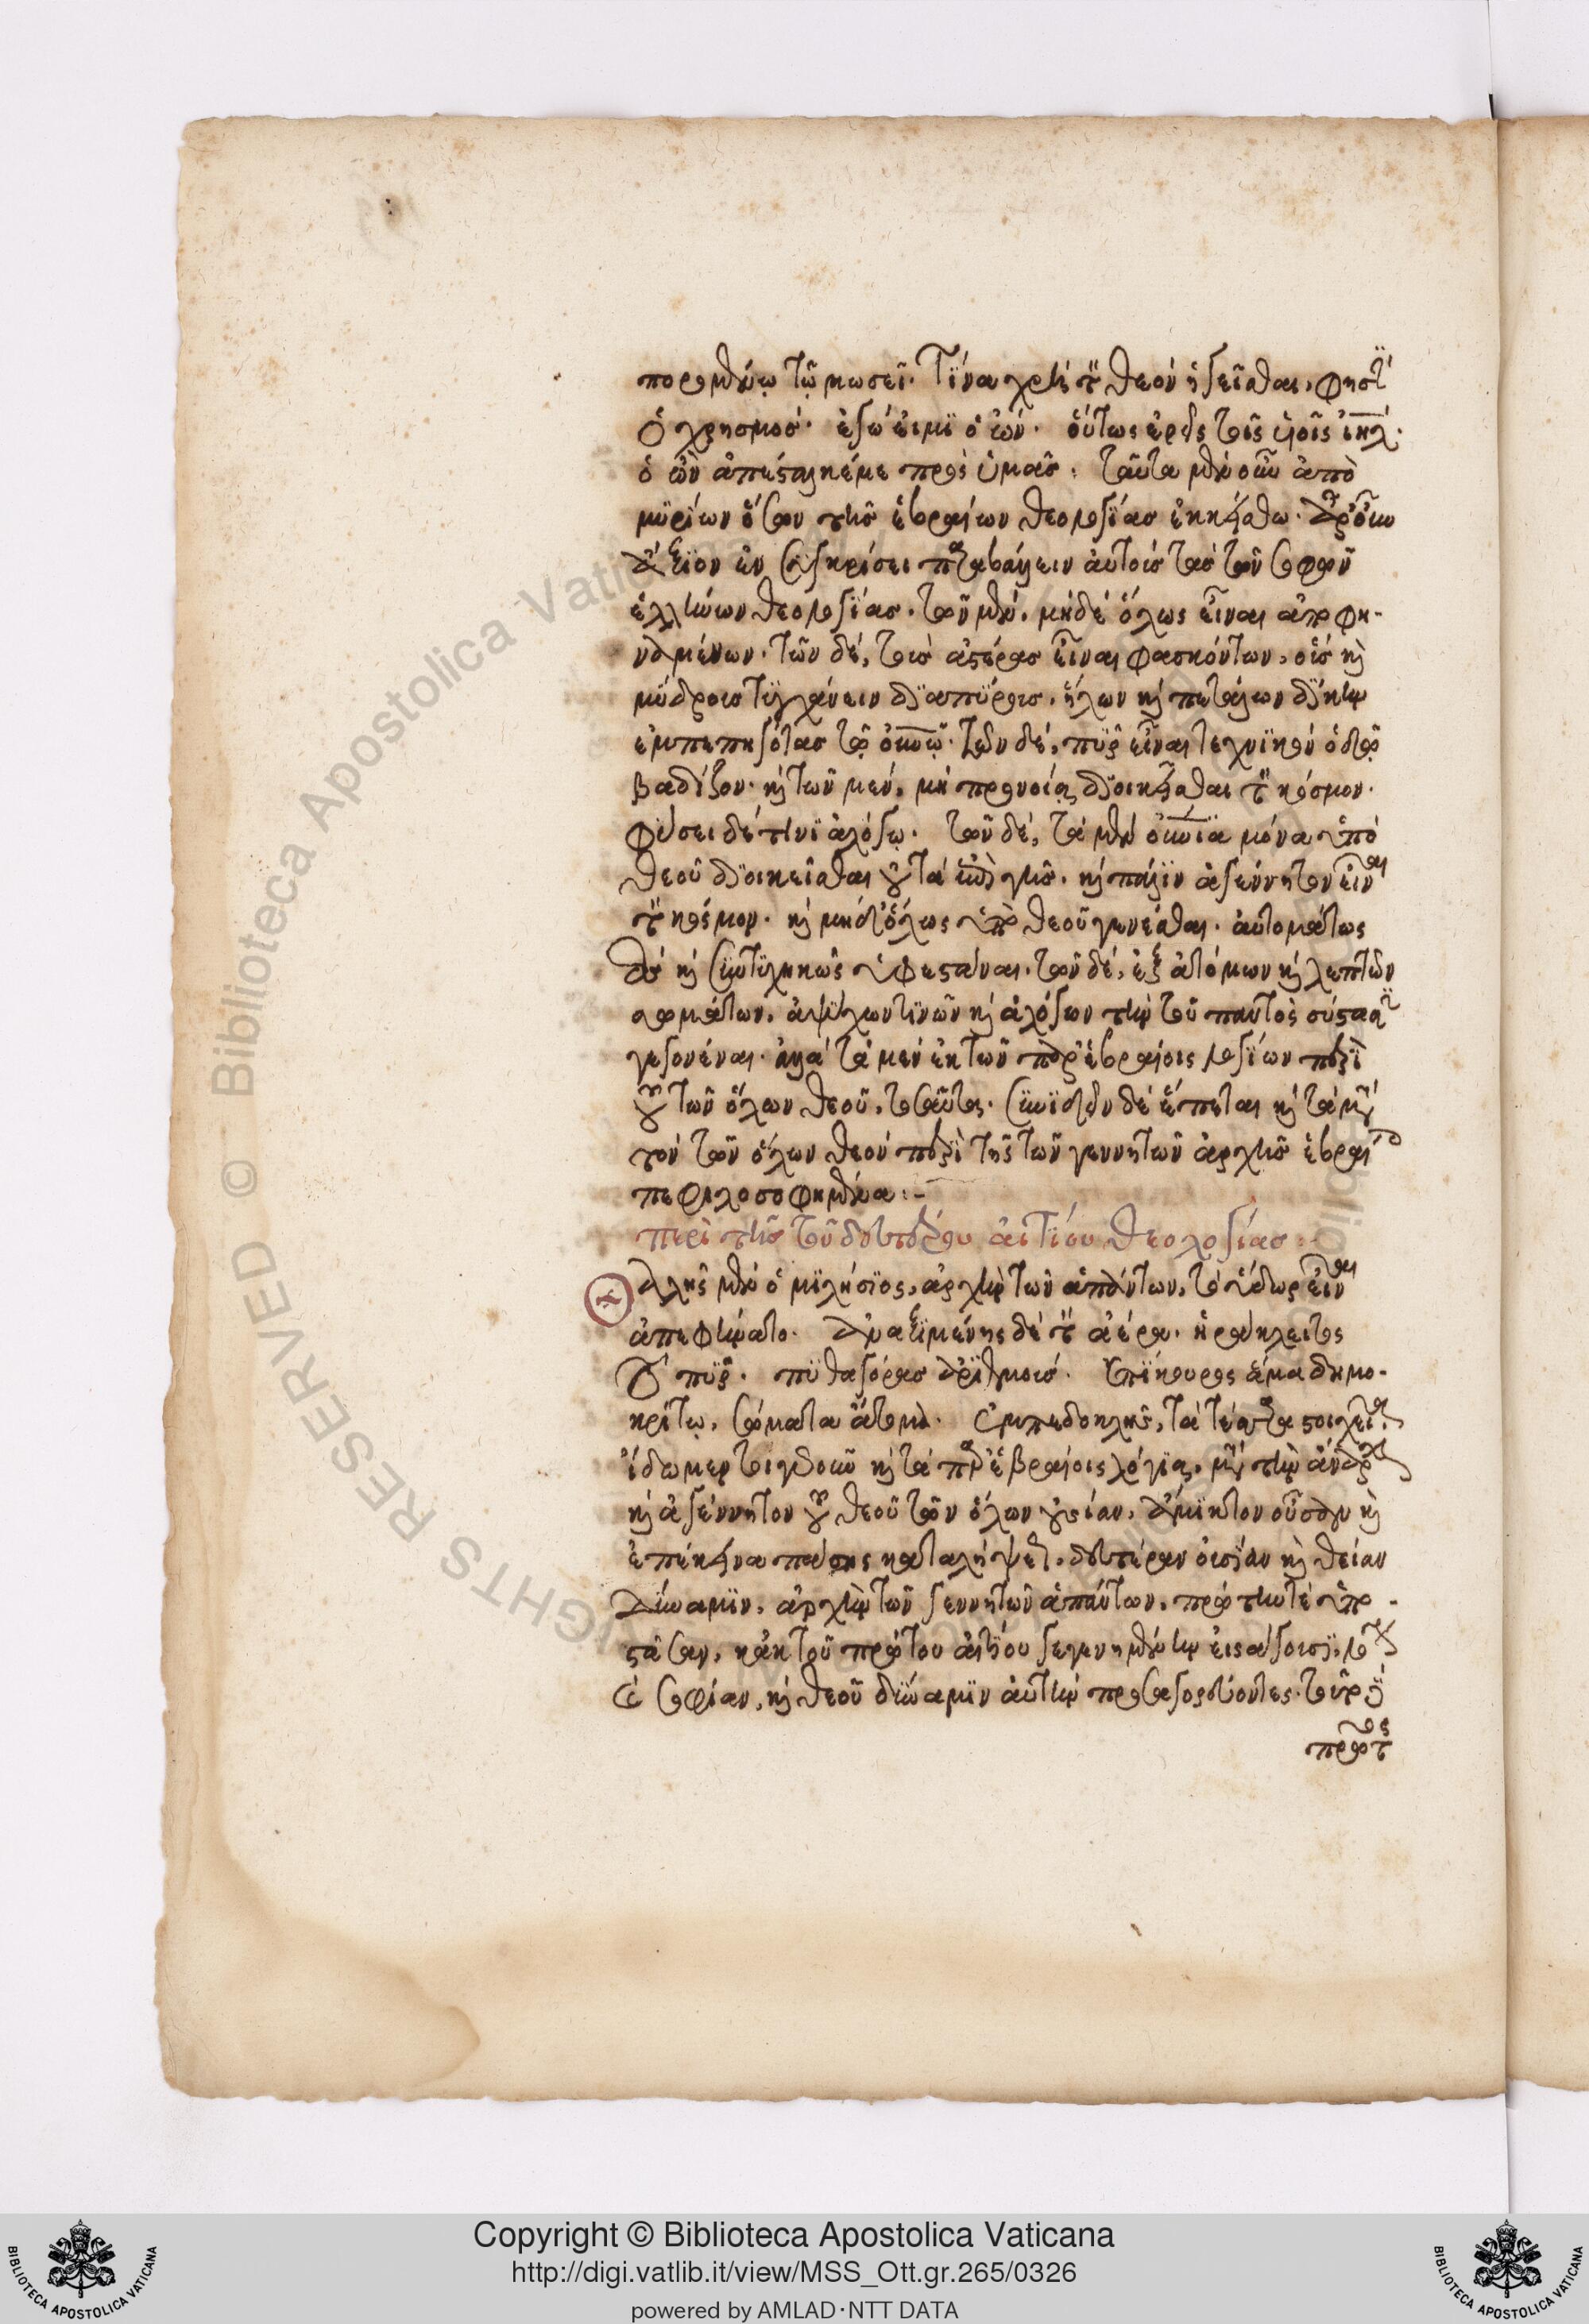 πορουμένῳ τῷ μωσεῖ. Τίνα χρὴ τὸν θεὸν ἡγεῖσθαι, φησὶν
ὁ χρησμός. ἐγώ εἰμι ὁ ὤν. οὕτως ἐρεῖς τοῖς υἱοῖς ιηλ.
ὁ ὢν ἀπέσταλκέ με πρὸς ὑμᾶς. ταῦτα μὲν οὖν ἀπὸ
μυρίων ὅσων τῆς ἑβραίων θεολογίας ἐκκείσθω. ἆρ' οὖν
ἄξιον ἐν συγκρίσει παραβάλλειν αὐτοῖς τὰς τῶν σοφῶν
ἑλλήνων θεολογίας. τῶν μὲν, μηδὲ ὅλως εἶναι ἀποφη-
ναμένων. τῶν δὲ, τοὺς ἀστέρας εἶναι φασκόντων, οὓς καὶ
μύδρους τυγχάνειν διαπύρους, ἥλων καὶ πετάλων δίκην
ἐμπεπηγότας τῷ οὐνῷ. τῶν δὲ, πῦρ εἶναι τεχνικὸν ὁδῷ
βαδίζον. καὶ τῶν μὲν, μὴ προνοίᾳ διοικεῖσθαι τὸν κόσμον.
φύσει δέ τινι ἀλόγῳ. τῶν δὲ, τὰ μὲν οὐνια μόνα ὑπὸ
θεοῦ διοικεῖσθαι οὐ τὰ ἐπὶ γῆς. καὶ πάλιν ἀγέννητον εἶναι
τὸν κόσμον. καὶ μηδ' ὅλως ὑπὸ θεοῦ γενέσθαι. αὐτομάτως
δὲ καὶ συντυχικῶς ὑφεστάναι. τῶν δὲ, ἐξ ἀτόμων καὶ λεπτῶν
σωμάτων, ἀψύχων τινῶν καὶ ἀλόγων τὴν τοῦ παντὸς σύστασιν
γεγονέναι. ἀλλὰ τὰ μὲν ἐκ τῶν παρ' ἑβραίοις λογίων περὶ
τοῦ τῶν ὅλων θεοῦ, τοσαῦτα. συνιδεῖν δὲ ἕπεται καὶ τὰ μετὰ
τὸν τῶν ὅλων θεὸν περὶ τῆς τῶν γεννητῶν ἀρχῆς ἑβραίοις
πεφιλοσοφημένα :-
περὶ τῆς τοῦ δευτέρου αἰτίου θεολογίας :-
αλλης μὲν ὁ μιλήσιος, ἀρχὴν τῶν ἁπάντων, τὸ ὕδωρ εἶναι
ἀπεφήνατο. ἀναξιμένης δὲ τὸν ἀέρα. ἡράκλειτος
τὸ πῦρ. πυθαγόρας ἀριθμούς. ἐπίκουρος ἅμα δημο-
κρίτῳ, σώματα ἄτομα. ἐμπεδοκλῆς, τὰ τέσσαρα στοιχεῖα.
ἴδωμεν τοιγαροῦν καὶ τὰ παρ' ἑβραίοις λόγια. μετὰ τὴν ἄναρχον
καὶ ἀγέννητον τοῦ θεοῦ τῶν ὅλων οὐσίαν, ἄμικτον οὖσαν καὶ
ἐπέκεινα πάσης καταλήψεως, δευτέραν οὐσίαν καὶ θείαν
δύναμιν, ἀρχὴν τῶν γεννητῶν ἁπάντων, πρώτην τε ὑπο-
στᾶσαν, κἀκ τοῦ πρώτου αἰτίου γεγενημένην εἰσάγουσι, λόγον
καὶ σοφίαν, καὶ θεοῦ δύναμιν αὐτὴν προσαγορεύοντες. τοῦτο δὲ
πρῶτος
Copyright © Biblioteca Apostolica Vaticana
http://digi.vatlib.it/view/MSS_Ott.gr.265/0326
powered by AMLAD·NTT DATA